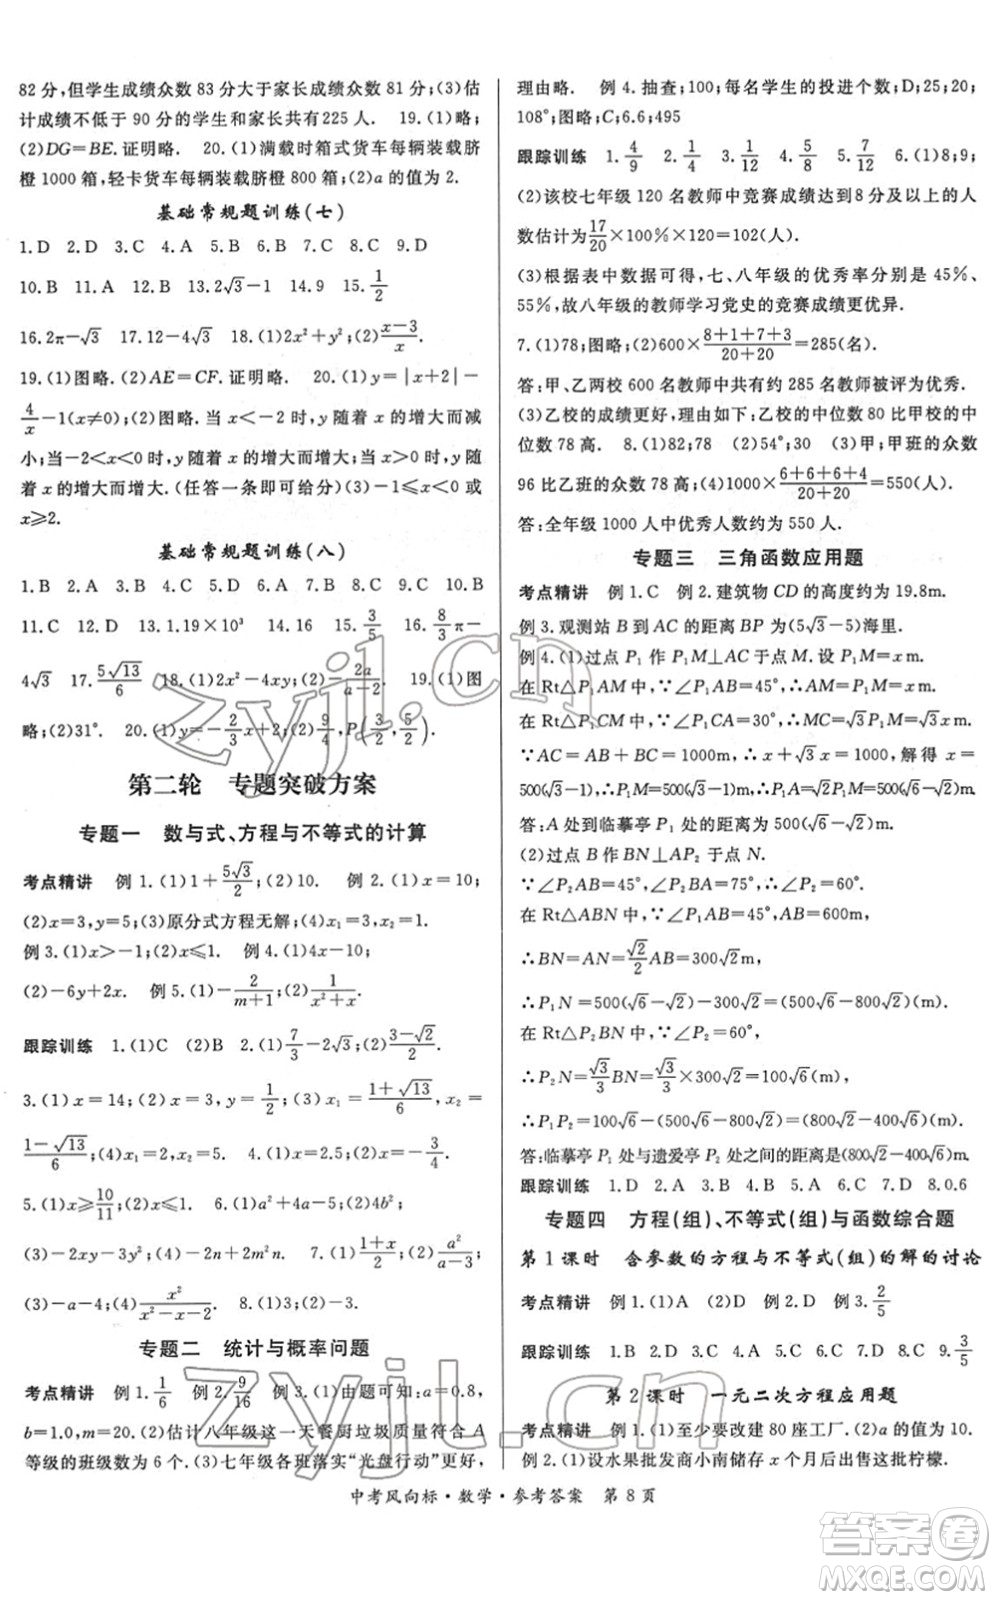 82 分,但学生成绩众数 83 分大于家长成绩众数 81 分;(3)估
计成绩不低于 90 分的学生和家长共有225 人.　19.(1)略;
(2)DG=BE.证明略.　20.(1)满载时箱式货车每辆装载脐
橙 1000 箱,轻卡货车每辆装载脐橙 800 箱;(2)a 的值为 2.
基础常规题训练(七)
1.D　2.D　3.C　4.A　5.B　6.B　7.B　8.C　9.D
10.B　11.A　12.B　13.2√3-1　14.9　15.1/2
16.2π-√3　17.12-4√3　18.(1)2x²+y²;(2)(x-3)/x.
19.(1)图略.(2)AE=CF.证明略.　20.(1)y=|x+2|-
4/x-1(x≠0);(2)图略,当 x<-2 时,y 随着 x 的增大而减
小;当-2<x<0 时,y 随着 x 的增大而增大;当 x>0 时,y
随着 x 的增大而增大.(任答一条即可给分)(3)-1≤x<0 或
x≥2.
基础常规题训练(八)
1.B　2.A　3.C　4.A　5.D　6.B　7.D　8.C　9.C　10.B
11.C　12.D　13.1.19×10³　14.16　15.3/5　16.8/3π-
4√3　17.5√13/6　18.(1)2x²-4xy;(2)2a/(a-2).　19.(1)图
略;(2)31°.　20.(1)y=-2/3x+2;(2)9/4,P(3/2,5/2).
第二轮　专题突破方案
专题一　数与式、方程与不等式的计算
考点精讲　例 1.(1)1+5√3/2;(2)10.　例 2.(1)x=10;
(2)x=3,y=5;(3)原分式方程无解;(4)x₁=3,x₂=1.
例 3.(1)x>-1;(2)x≤1.　例 4.(1)4x-10;
(2)-6y+2x.　例 5.(1)-2/(m+1);(2)1/(x²+x).
跟踪训练　1.(1)C　(2)B　2.(1)7/3-2√3;(2)(3-√2)/2.
3.(1)x=14;(2)x=2,y=1/2;(3)x₁=(1+√13)/6,x₂=
(1-√13)/6;(4)x₁=2,x₂=1.　4.(1)x=2.5;(2)x=-3/4.
5.(1)x≥10/11;(2)x≤1.　6.(1)a²+4a-5;(2)4b²;
(3)-2xy-3y²;(4)-2m+2n²m.　7.(1)(1+x)/2;(2)a²/a²;
(3)-a-4;(4)x²/(x²-x-2).　8.(1)3;(2)-3.
专题二　统计与概率问题
考点精讲　例 1.1/6　例 2.9/16　例 3.(1)由题可知:a=0.8,
b=1.0,m=20.(2)估计八年级这一天餐厨垃圾质量符合 A
等级的班级数为 6 个.(3)七年级各班落实“光盘行动”更好,
理由略.　例 4.抽查;100;每名学生的投进个数;D;25;20;
108°;图略;C;6.6;495
跟踪训练　1.4/9　2.1/4　3.1/12　4.3/8　5.3/8　6.(1)8;9;
(2)该校七年级 120 名教师中竞赛成绩达到8分及以上的人
数估计为17/20×100%×120=102(人).
(3)根据表中数据可得,七、八年级的优秀率分别是 45%、
55%,故八年级的教师学习党史的竞赛成绩更优异.
7.(1)78;图略;(2)600×(8+1+7+3)/(20+20)=285(名).
答:甲、乙两校 600 名教师中共有约 285 名教师被评为优秀.
(3)乙校的成绩更好,理由如下:乙校的中位数 80 比甲校的中
位数 78 高.　8.(1)82;78　(2)54°;30　(3)甲;甲班的众数
96 比乙班的众数 78 高;(4)1000×(6+6+6+4)/(20+20)=550(人).
答:全年级 1000 人中优秀人数约为 550 人.
专题三　三角函数应用题
考点精讲　例 1.C　例 2.建筑物 CD 的高度约为 19.8m.
例 3.观测站 B 到 AC 的距离 BP 为(5√3-5)海里.
例 4.(1)过点 P₁ 作 P₁M⊥AC 于点 M.设 P₁M=x m.
在 Rt△P₁AM 中,∵∠P₁AB=45°,∴AM=P₁M=x m.
在 Rt△P₁CM 中,∵∠P₁CA=30°,∴MC=√3P₁M=√3x m.
∵AC=AB+BC=1000,∴x+√3x=1000,解得 x=
500(√3-1).∴P₁M=500(√3-1)m.∴P₁A=√2P₁M=500(√6-√2)m.
答:A 处到临摹亭 P₁ 处的距离为 500(√6-√2)m.
(2)过点 B 作 BN⊥AP₂ 于点 N.
∵∠P₂AB=45°,∠P₂BA=75°,∴∠P₂=60°.
在 Rt△ABN 中,∵∠P₁AB=45°,AB=600m,
∴BN=AN=√2/2AB=300√2m.
∴P₁N=500(√6-√2)-300√2=(500√6-800√2)(m).
在 Rt△P₂BN 中,∵∠P₂=60°,
∴P₂N=√3/3BN=√3/3×300√2=100√6(m).
∴P₁P₂=100√6-(500√6-800√2)=(800√2-400√6)(m).
答:临摹亭 P₁ 与遗爱亭 P₂ 处之间的距离是(800√2-400√6)m.
跟踪训练　1.D　2.A　3.B　4.D　5.A　6.C　7.D　8.0.6
专题四　方程(组)、不等式(组)与函数综合题
第 1 课时　含参数的方程与不等式(组)的解的讨论
考点精讲　例 1.(1)A　(2)D　例 2.D　例 3.2/5
跟踪训练　1.B　2.A　3.B　4.B　5.B　6.D　7.A　8.C　9.3/5
第 2 课时　一元二次方程应用题
考点精讲　例 1.(1)至少要改建 80 座工厂.(2)a 的值为 10.
例 2.(1)设水果批发商小南储存 x个月后出售这批柠檬.
中考风向标·数学·参考答案　第 8 页
zyjl.cn
zyjl.cn
答案卷
MXQE.COM